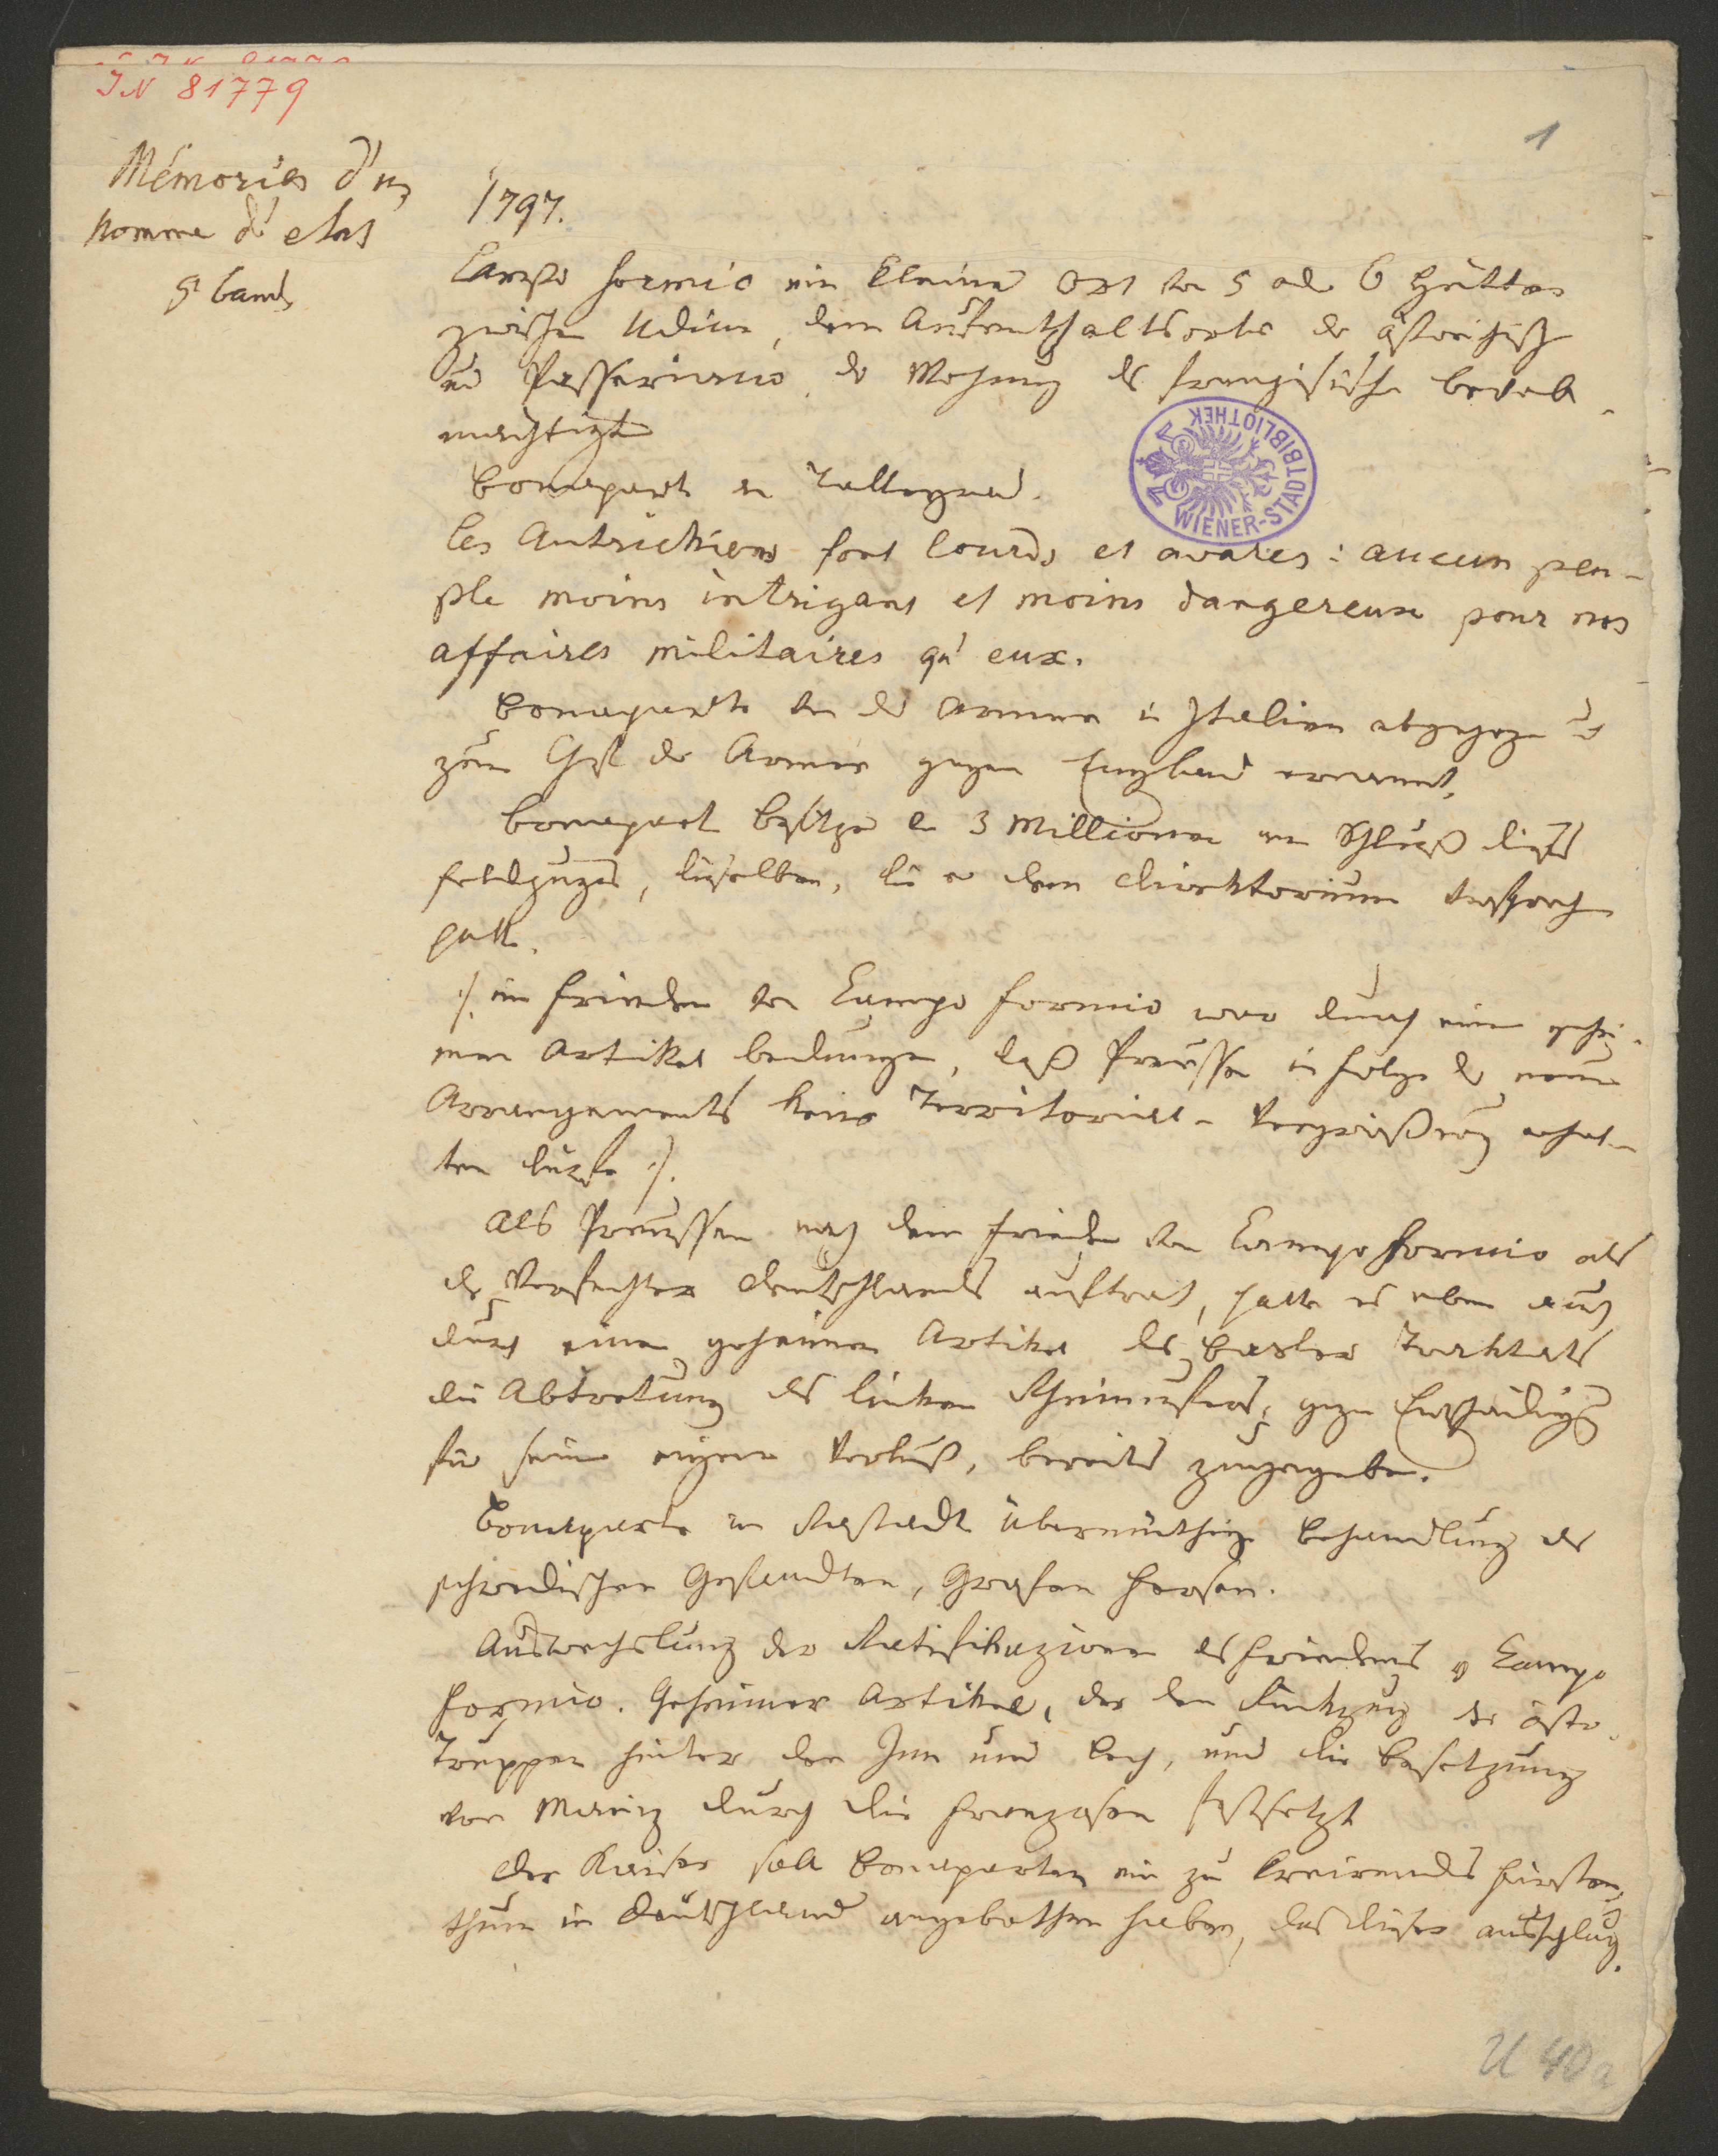 IN 81779
1
Mémories d'un
homme d' etat
5r band
1797.
Campo Formio ein kleiner Ort von 5 oder 6 Hütten
zwischen Udine, dem Aufenthaltsorte der östreichisch
und Passeriano, der Wohnung des französischen Bevoll-
mächtigten
Bonaparte an Talleyrand.
les Autrichiens sont lourds et avares: aucun peu-
ple moins intrigant et moins dangereux pour nos
affaires militaires qu' eux.
Bonaparte von der Armee in Italien abgezogen und
zum Chef der Armee gegen England ernannt.
Bonaparte besitzt 3 Millionen am Schluß dieses
Feldzuges, dieselben, die er dem Direktorium versprochen
hatte.
/: im Frieden von Campo Formio war durch einen gehei-
men Artikel bedungen, daß Preussen in Folge der neuen
Arrangements keine Territorial-Vergrößerung erhal-
ten dürfe :/.
Als Preussen nach dem Frieden von Campo Formio als
der Verfechter Deutschlands auftrat, hatte es eben auch
durch einen geheimen Artikel des Basler Traktats
die Abtretung des linken Rheinufers, gegen Entschädigung
für seinen eigenen Verlust, bereits zugegeben.
Bonaparte in Rastadt übermüthige Behandlung des
schwedischen Gesandten, Grafen Fersen.
Auswechslung der Ratifikazionen des Friedens v Campo
Formio. Geheimer Artikel, der den Rückzug der östr.
Truppen hinter den Inn und Lech, und die Besetzung
von Mainz durch die Franzosen festsetzt
Der Kaiser soll Bonaparten ein zu kreirendes Fürsten-
thum in Deutschland angebothen haben, das dieser ausschlug.
WIENER-STADTBIBLIOTHEK
U 40a